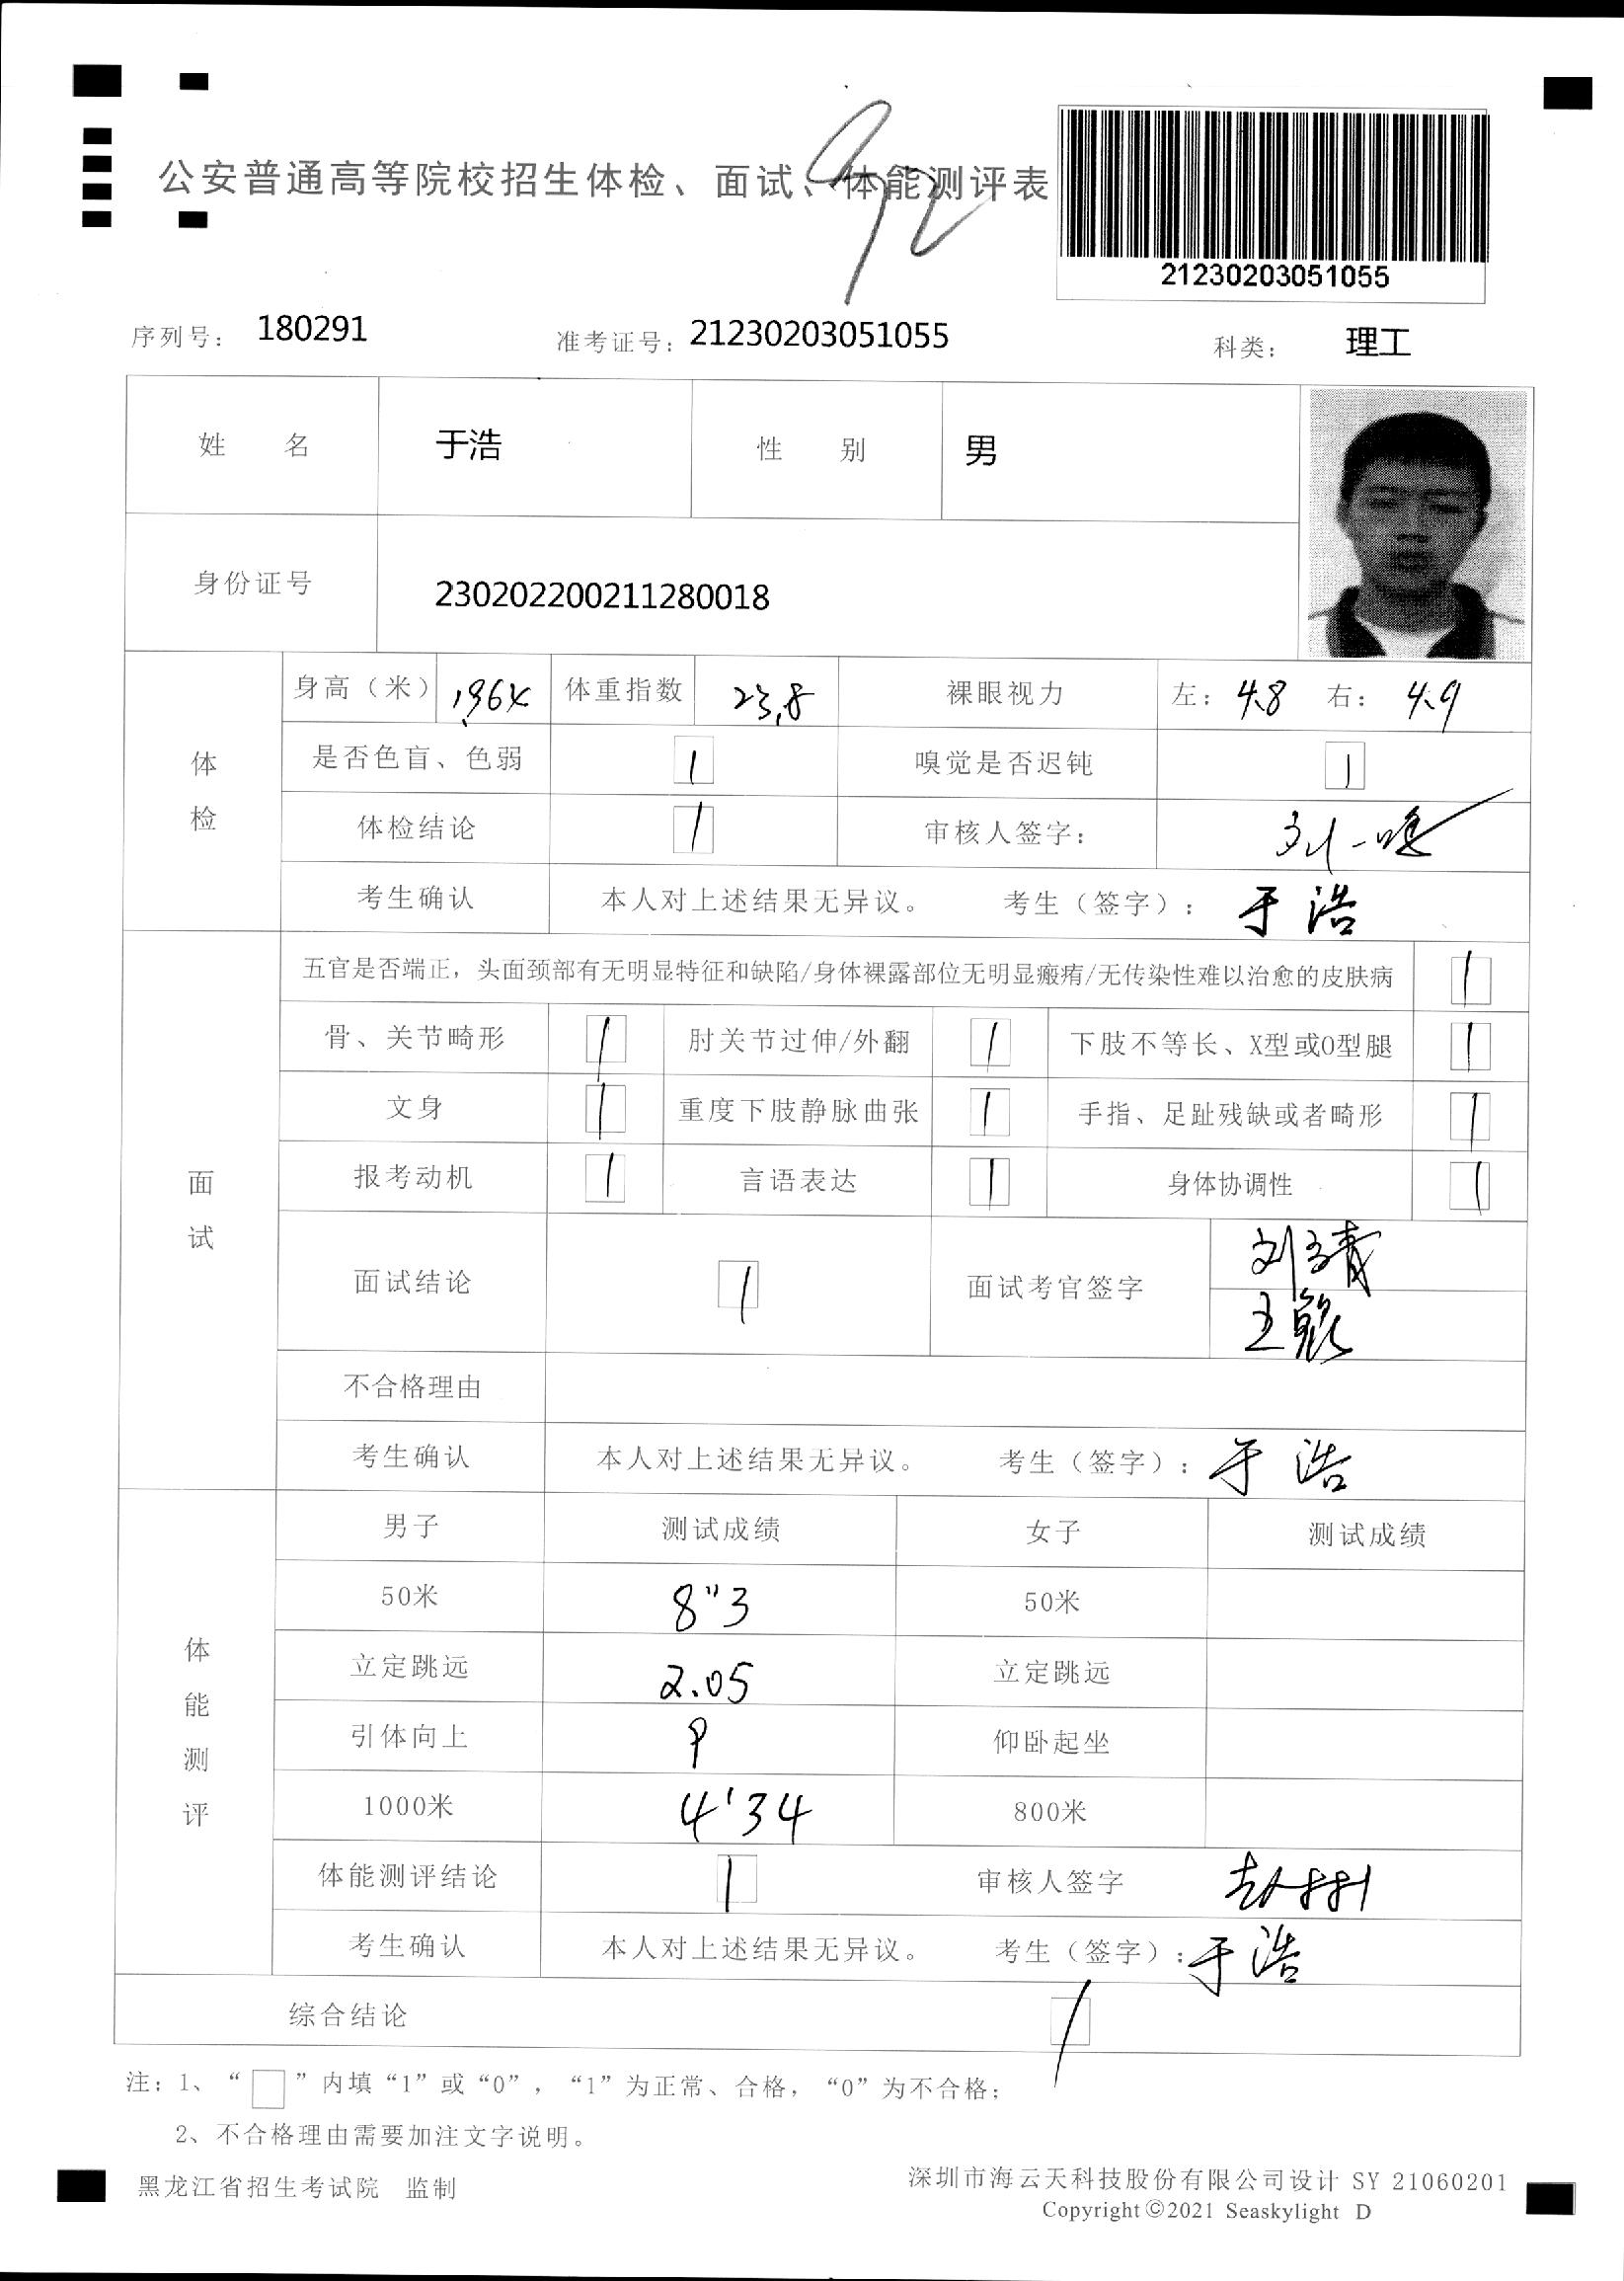 92
公安普通高等院校招生体检、面试、体能测评表
21230203051055
序列号： 180291 准考证号：21230203051055 科类： 理工
姓 名 于浩 性 别 男
身份证号 230202200211280018
体检
身高（米） 1.964 体重指数 23.8 裸眼视力 左：4.8 右：4.9
是否色盲、色弱 1 嗅觉是否迟钝 1
体检结论 1 审核人签字：
考生确认 本人对上述结果无异议。 考生（签字）： 于浩
面试
五官是否端正，头面颈部有无明显特征和缺陷/身体裸露部位无明显瘢痏/无传染性难以治愈的皮肤病 1
骨、关节畸形 1 肘关节过伸/外翻 1 下肢不等长、X型或O型腿 1
文身 1 重度下肢静脉曲张 1 手指、足趾残缺或者畸形 1
报考动机 1 言语表达 1 身体协调性 1
面试结论 1 面试考官签字
不合格理由
考生确认 本人对上述结果无异议。 考生（签字）： 于浩
体能测评
男子 测试成绩 女子 测试成绩
50米 8"3 50米
立定跳远 2.05 立定跳远
引体向上 仰卧起坐
1000米 4'34 800米
体能测评结论 1 审核人签字
考生确认 本人对上述结果无异议。 考生（签字）：于浩
综合结论 1
注：1、“□”内填“1”或“0”，“1”为正常、合格，“0”为不合格；
2、不合格理由需要加注文字说明。
黑龙江省招生考试院 监制
深圳市海云天科技股份有限公司设计 SY 21060201
Copyright©2021 Seaskylight D